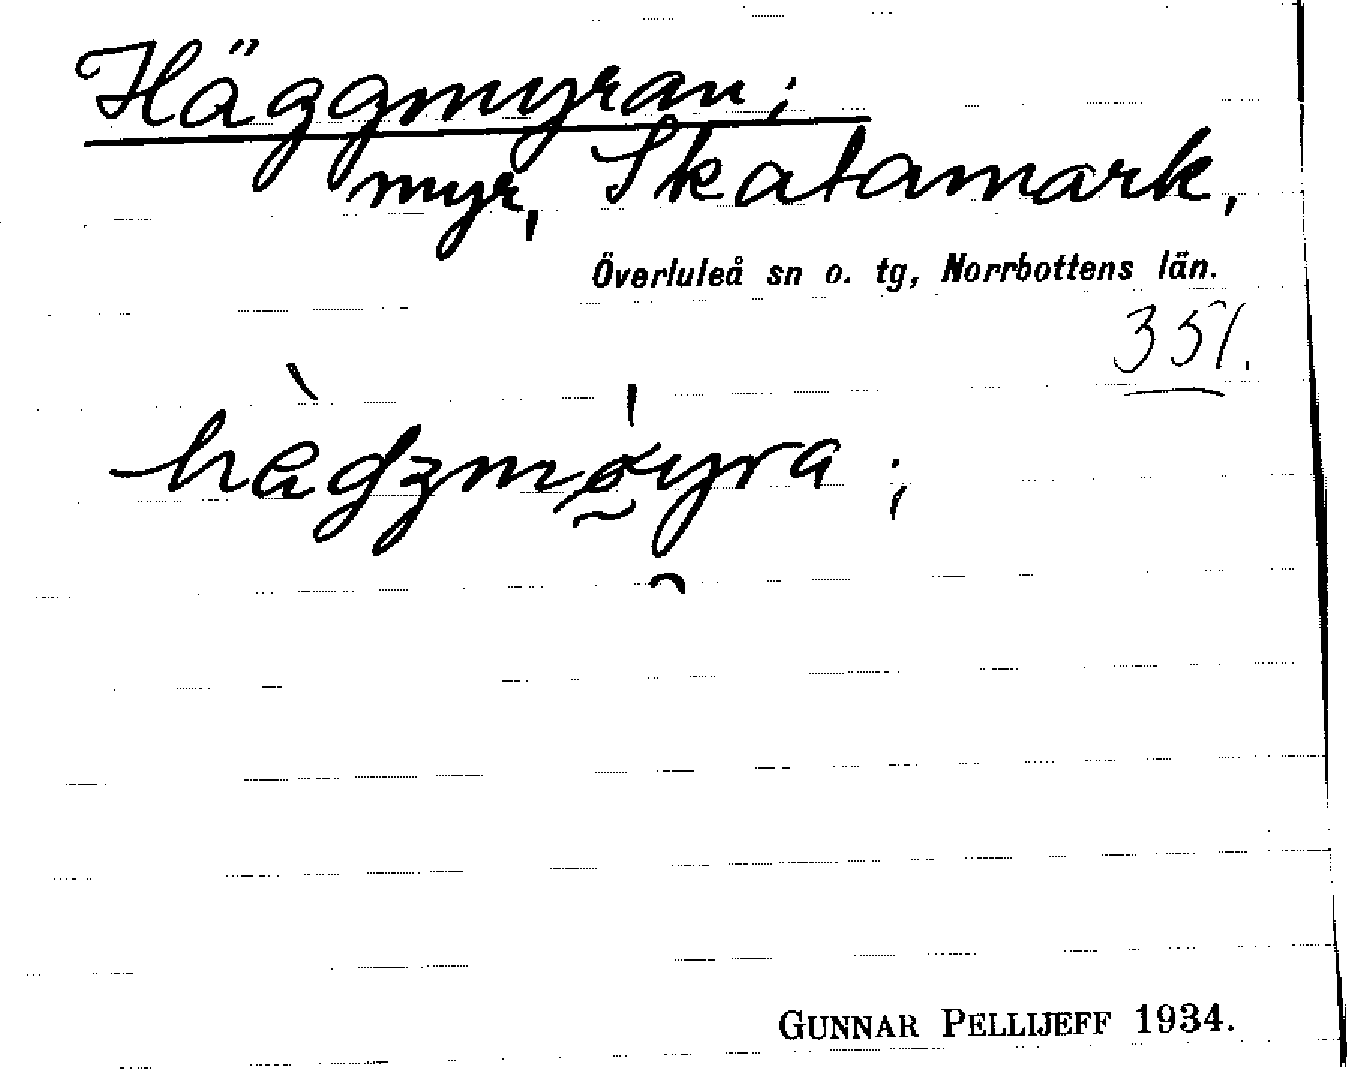 Häggmyran;
myr, Skatamark,
Överluleå sn o. tg, Norrbottens län.
351.
GUNNAR PELLIJEFF 1934.